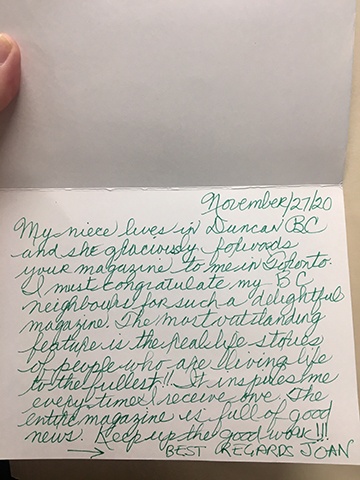 November/27/20
My niece lives in Duncan BC
and she graciously forwads
your magazine to me in Toronto.
I must congratulate my BC
neighbours for such a delightful
magazine. The most outstanding
feature is the real life stories
of people who are living life
to the fullest!!! It inspires me
every time I receive one. The
entire magazine is full of good
news. Keep up the good work!!!
→ BEST REGARDS JOAN